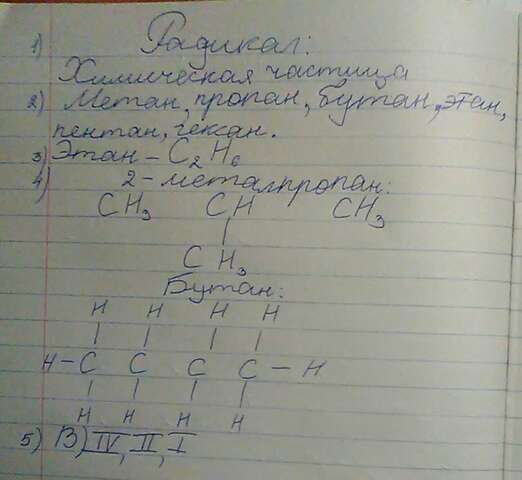 1) Радикал:
Химическая частица
2) Метан, пропан, бутан, этан,
пентан, гексан.
3) Этан – C₂H₆
4) 2-металпропан:
CH₃ CH CH₃
CH₃
Бутан:
H H H H
H – C C C C – H
H H H H
5) В) IV, II, I